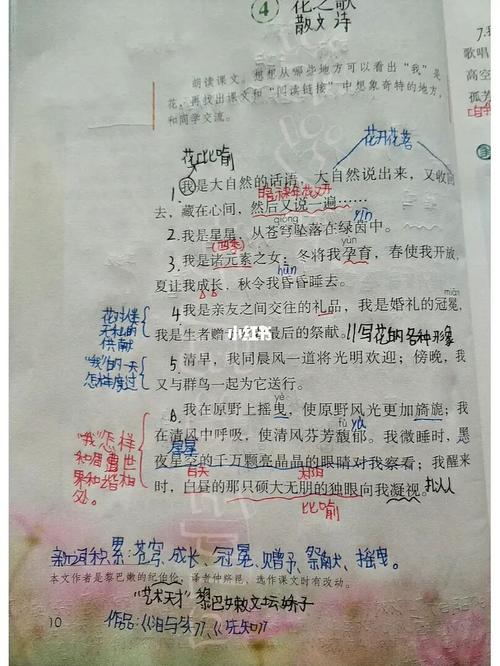 4 花之歌
散文诗
朗读课文。想想从哪些地方可以看出“我”是
花，再找出课文和“阅读链接”中想象奇特的地方，
和同学交流。
歌唱
高空
孤芳
花比喻
花开花落
1. 我是大自然的话语，大自然说出来，又收回
去，藏在心间，然后又说一遍……
qióng yīn
2. 我是星星，从苍穹坠落在绿茵中。
(四季) yùn
3. 我是诸元素之女：冬将我孕育，春使我开放，
hūn
夏让我成长，秋令我昏昏睡去。
miǎn
4 我是亲友之间交往的礼品，我是婚礼的冠冕，
我是生者赠 最后的祭献。写花的各种形象
小红书
5. 清早，我同晨风一道将光明欢迎；傍晚，我
又与群鸟一起为它送行。
花对人类
大和的
供献
“我”的一天
怎样度过
yè yǐ
6 我在原野上摇曳，使原野风光更加旖旎；我
fù yù
在清风中呼吸，使清风芬芳馥郁。我微睡时，黑
星星
夜星空的千万颗亮晶晶的眼睛对我察看；我醒来
白天
时，白昼的那只硕大无朋的独眼向我凝视。拟人
比喻
“我”怎样
和周围世
界和谐相
处。
新词积累：苍穹、成长、冠冕、赠予、祭献、摇曳。
本文作者是黎巴嫩的纪伯伦，译者仲跻昆，选作课文时有改动。
“艺术天才”黎巴嫩文坛骄子
10
作品：《泪与笑》、《先知》